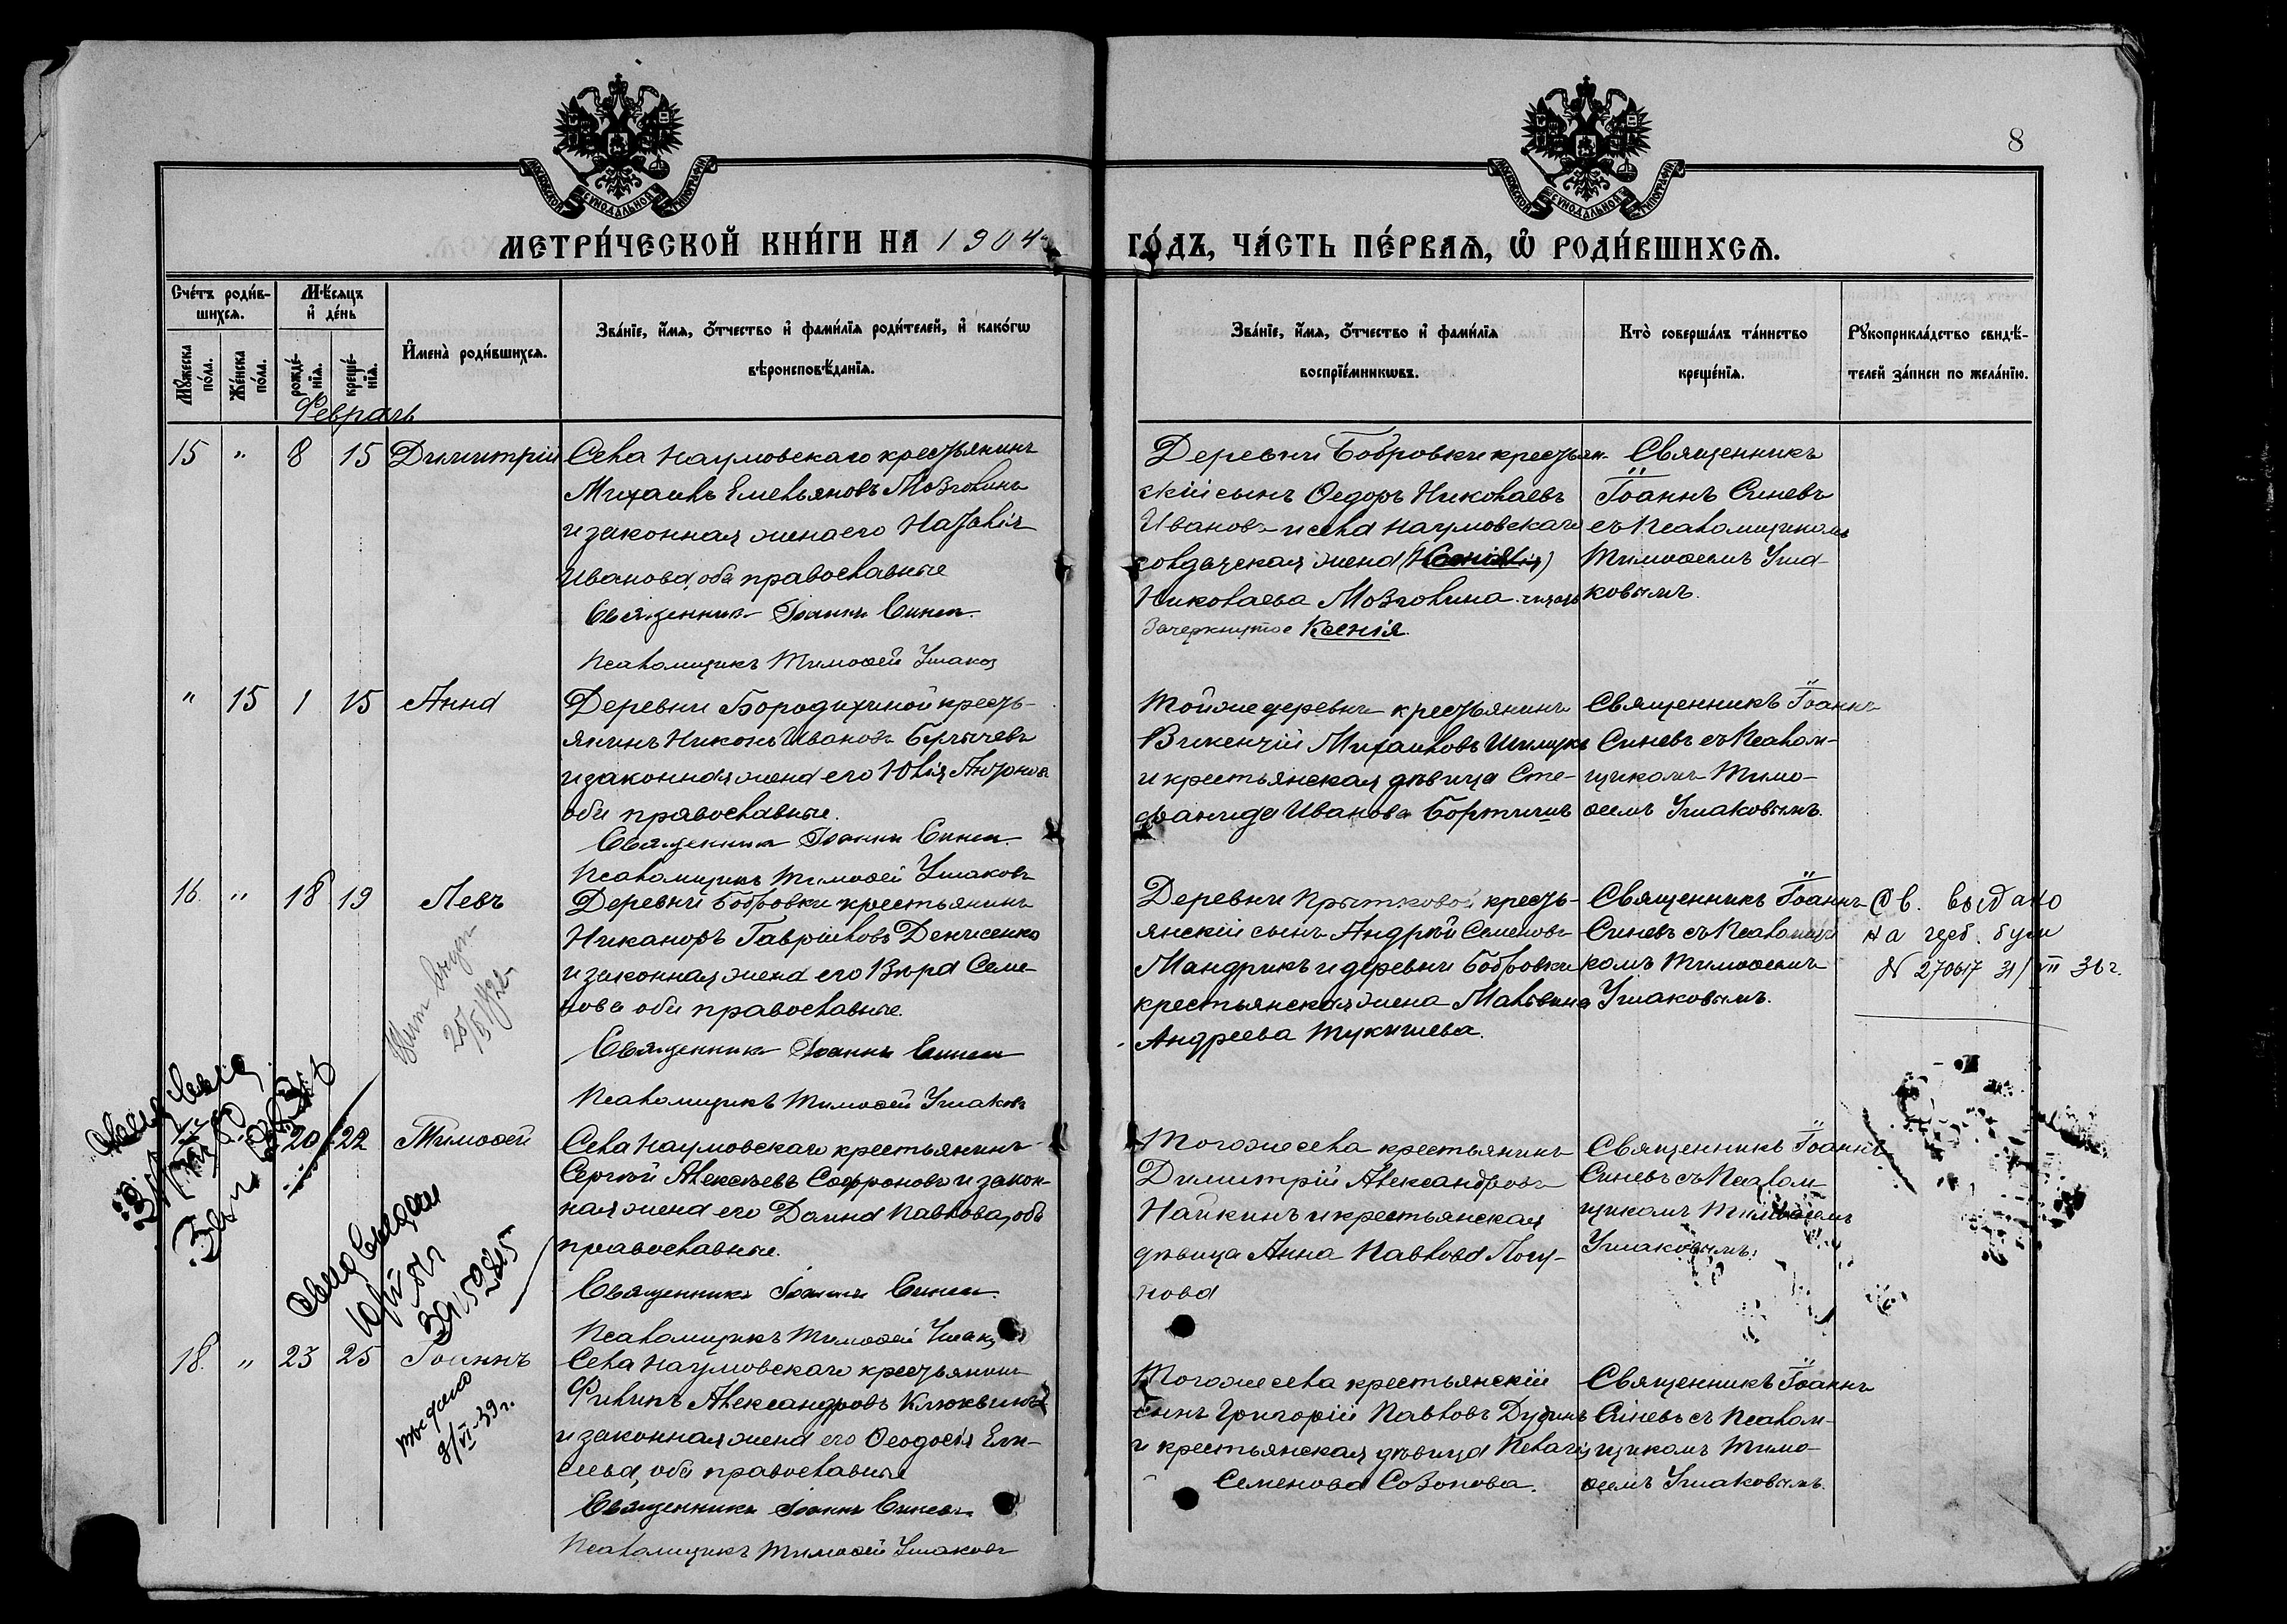 8
МЕТРИ́ЧЕСКОЙ КНИ́ГИ НА 1904 ГО́ДЪ, ЧА́СТЬ ПЕ́РВАѦ, Ѽ РОДИ́ВШИХСѦ.
Сче́тъ роди́в-
шихсѧ.
Мꙋжеска
по́ла.
Же́нска
по́ла.
Мѣ́сѧцъ
и҆ де́нь
рожде́-
нїѧ.
креще́-
нїѧ.
И҆мена̀ роди́вшихсѧ.
Зва́нїе, и҆́мѧ, ѻ҆́тчество и҆ фами́лїѧ роди́телей, и҆ како́гѡ
вѣроисповѣ́данїѧ.
Зва́нїе, и҆́мѧ, ѻ҆́тчество и҆ фами́лїѧ
воспрїе́мникѡвъ.
Кто̀ соверша́лъ та́инство
креще́нїѧ.
Рꙋкоприкла́дство свидѣ́-
телей за́писи по жела́нїю.
Февраль
15 " 8 15 Димитрій
Села Наумовскаго крестьянинъ
Михаилъ Емельяновъ Мозголинъ
и законная жена его Наталія
Иванова, оба православные
Священникъ Іоаннъ Синевъ
Псаломщикъ Тимоѳей Ушаковъ
Деревни Бобровки крестьян-
скій сынъ Ѳедоръ Николаевъ
Ивановъ и села Наумовскаго
солдатская жена
Николаева Мозголина. читать
Зачеркнутое Ксенія.
Священникъ
Іоаннъ Синевъ
съ Псаломщикомъ
Тимоѳеемъ Уша-
ковымъ.
" 15 1 15 Анна
Деревни Бородихиной кресть-
янинъ Никонъ Ивановъ
и законная жена его Юлія Антонова
оба православные.
Священникъ Іоаннъ Синевъ
Псаломщикъ Тимоѳей Ушаковъ
Той же деревни крестьянинъ
Викентій Михаиловъ
и крестьянская дѣвица Сте-
фанида Иванова
Священникъ Іоаннъ
Синевъ съ Псалом-
щикомъ Тимо-
ѳеемъ Ушаковымъ.
16. " 18 19 Левъ
Деревни Бобровки крестьянинъ
Никаноръ Гавріиловъ Денисенко
и законная жена его Вѣра Семе-
нова оба православные.
Священникъ Іоаннъ Синевъ
Псаломщикъ Тимоѳей Ушаковъ
Деревни Прытковой кресть-
янскій сынъ Андрей Семеновъ
Мандрикъ и деревни Бобровки
крестьянская жена Мальвина
Андреева Тукишева.
Священникъ Іоаннъ
Синевъ съ Псаломщи
комъ Тимоѳеемъ
Ушаковымъ.
Св. выдано
на герб. бум
N 270617 31/VII 36 г.
20 22 Тимоѳей
Села Наумовскаго крестьянинъ
Сергѣй Алексѣевъ Софроновъ и закон-
ная жена его Домна Павлова, оба
православные.
Священникъ Іоаннъ Синевъ
Псаломщикъ Тимоѳей Ушаковъ
Того же села крестьянинъ
Димитрій Александровъ
Найкинъ и крестьянская
дѣвица Анна Павлова Логу-
нова
Священникъ Іоаннъ
Синевъ съ Псалом-
щикомъ Тимоѳеемъ
Ушаковымъ.
18. " 23 25 Іоаннъ
выдано
9/VI-39 г.
Села Наумовскаго крестьянинъ
Филипъ Александровъ Клюквинъ
и законная жена его Ѳеодосія Ели-
сѣева, оба православные
Священникъ Іоаннъ Синевъ
Псаломщикъ Тимоѳей Ушаковъ
Того же села крестьянскій
сынъ Григорій Павловъ Дудинъ
и крестьянская дѣвица Пелагія
Семенова Созонова.
Священникъ Іоаннъ
Синевъ съ Псалом-
щикомъ Тимо-
ѳеемъ Ушаковымъ.